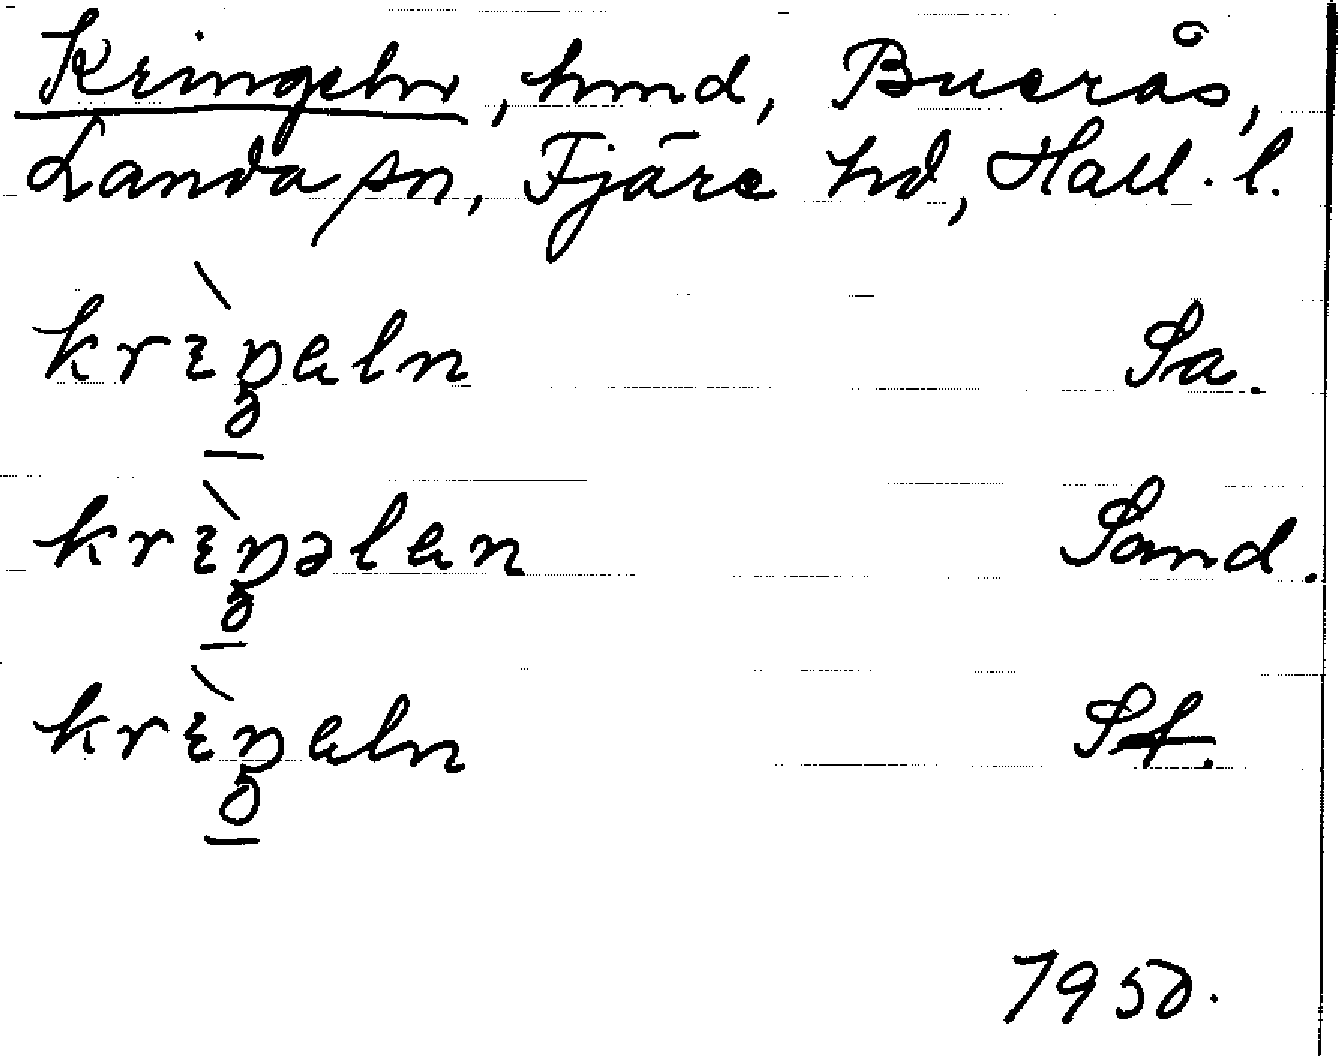 Kringeln, hmd, Buerås,
Landa sn, Fjäre hd, Hall. l.
krɪ̀ŋeln Sa.
krɪ̀ŋəlen Sand.
krɪ̀ŋeln St.
1950.